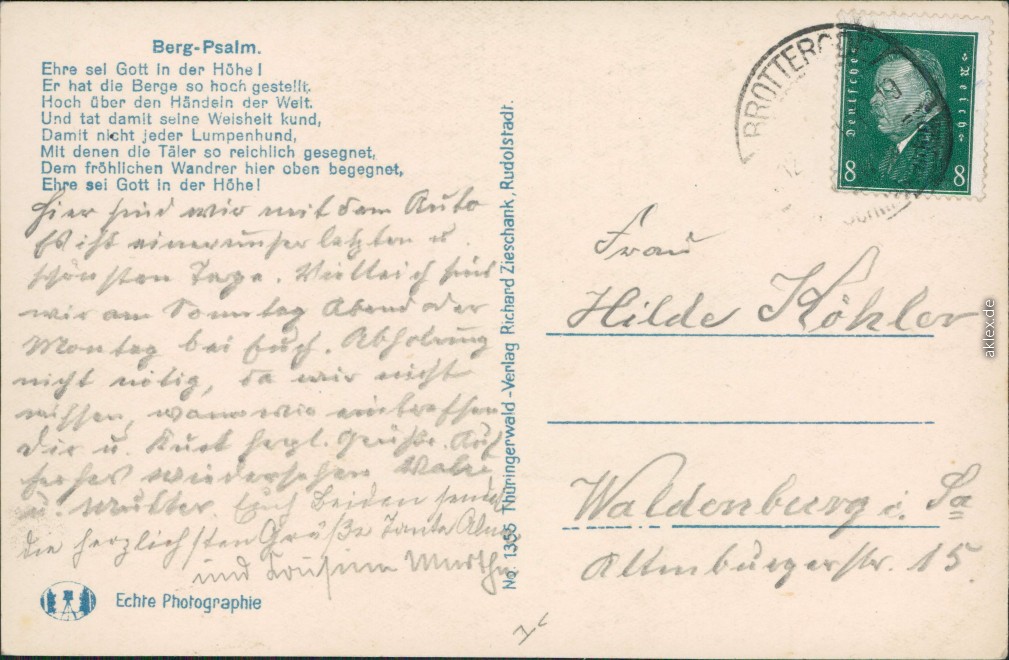 Berg-Psalm.
Ehre sei Gott in der Höhe!
Er hat die Berge so hoch gestellt.
Hoch über den Händeln der Welt.
Und tat damit seine Weisheit kund,
Damit nicht jeder Lumpenhund,
Mit denen die Täler so reichlich gesegnet,
Dem fröhlichen Wandrer hier oben begegnet,
Ehre sei Gott in der Höhe!
Hier sind wir mit dem Auto
Es ist einer unser letzten u.
schönsten Tage. Vielleich sind
wir am Sonntag Abend oder
Montag bei Euch. Abholung
nicht nötig, da wir nicht
wissen, wann wir eintreffen
Dir u. Kurt herzl. Grüße. Auf
Wiedersehen
u. Mutter. Euch Beiden sendet
die herzlichsten Grüße Tante
und Cousine Martha
Echte Photographie
No. 1355 Thüringerwald-Verlag Richard Zieschank, Rudolstadt.
BROTTERODE
Deutsches Reich
8 8
Frau
Hilde Köhler
Waldenburg i. Sa
Altenburgerstr. 15.
aklex.de